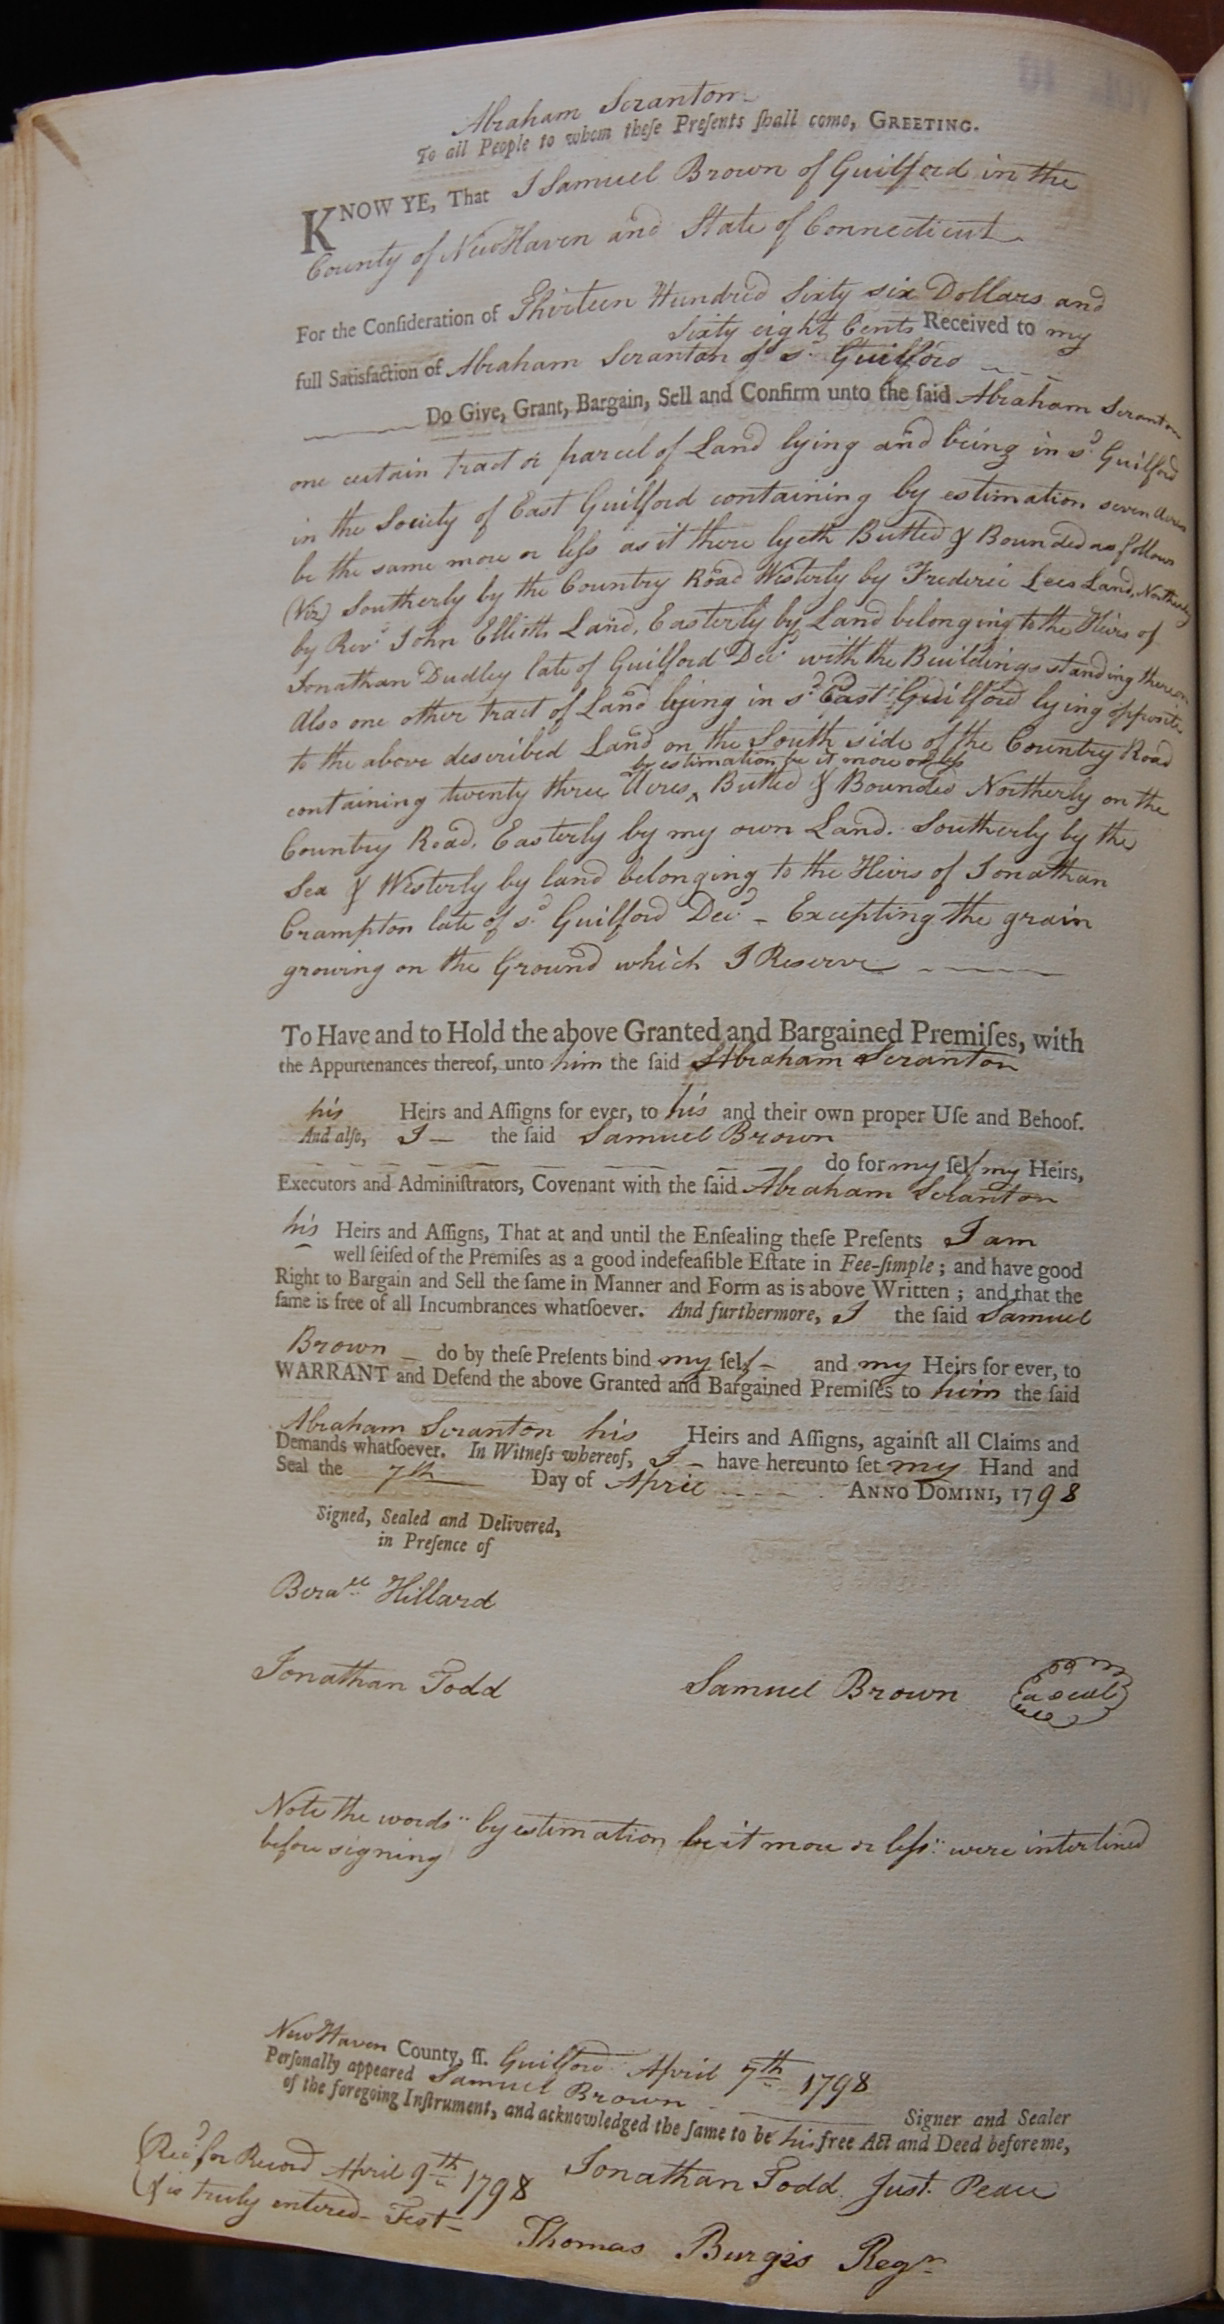 Abraham Scranton
To all People to whom theſe Preſents ſhall come, GREETING.
KNOW YE, That I Samuel Brown of Guilford in the
County of New Haven and State of Connecticut
For the Conſideration of Thirteen Hundred Sixty six Dollars and
Sixty eight Cents Received to my
full Satisfaction of Abraham Scranton of sd Guilford
Do Give, Grant, Bargain, Sell and Confirm unto the ſaid Abraham Scranton
one certain tract or parcel of Land lying and being in sd Guilford
in the Society of East Guilford containing by estimation seven Acres
be the same more or leſs as it there lyeth Butted & Bounded as follows
(Viz) Southerly by the Country Road Westerly by Frederic Lees Land, Northerly
by Revd John Elliotts Land, Easterly by Land belonging to the Heirs of
Jonathan Dudley late of Guilford Decd with the Buildings standing thereon
Also one other tract of Land lying in sd East Guilford lying opposite
to the above described Land on the South side of the Country Road
by estimation be it more or leſs
containing twenty three Acres ^ Butted & Bounded Northerly on the
Country Road, Easterly by my own Land. Southerly by the
Sea & Westerly by land belonging to the Heirs of Jonathan
Crampton late of sd Guilford Decd - Excepting the grain
growing on the Ground which I Reserve
To Have and to Hold the above Granted and Bargained Premiſes, with
the Appurtenances thereof, unto him the ſaid Abraham Scranton
his Heirs and Aſſigns for ever, to his and their own proper Uſe and Behoof.
And alſo, I - the ſaid Samuel Brown
do for my ſelf my Heirs,
Executors and Adminiſtrators, Covenant with the ſaid Abraham Scranton
his Heirs and Aſſigns, That at and until the Enſealing theſe Preſents I am
well ſeiſed of the Premiſes as a good indefeaſible Eſtate in Fee-ſimple; and have good
Right to Bargain and Sell the ſame in Manner and Form as is above Written; and that the
ſame is free of all Incumbrances whatſoever. And furthermore, I the ſaid Samuel
Brown - do by theſe Preſents bind my ſelf - and my Heirs for ever, to
WARRANT and Defend the above Granted and Bargained Premiſes to him the ſaid
Abraham Scranton his Heirs and Aſſigns, againſt all Claims and
Demands whatſoever. In Witneſs whereof, I - have hereunto ſet my Hand and
Seal the 7th Day of April ANNO DOMINI, 1798
Signed, Sealed and Delivered,
in Preſence of
Hillard
Jonathan Todd Samuel Brown a seal
Note the words " by estimation be it more or leſs " were interlined
before signing
New Haven County, ſſ. Guilford April 7th 1798
Perſonally appeared Samuel Brown Signer and Sealer
of the foregoing Inſtrument, and acknowledged the ſame to be his free Act and Deed before me,
Jonathan Todd Just. Peace
Recd for Record April 9th 1798
& is truly entered - Test - Thomas Burgis Regr